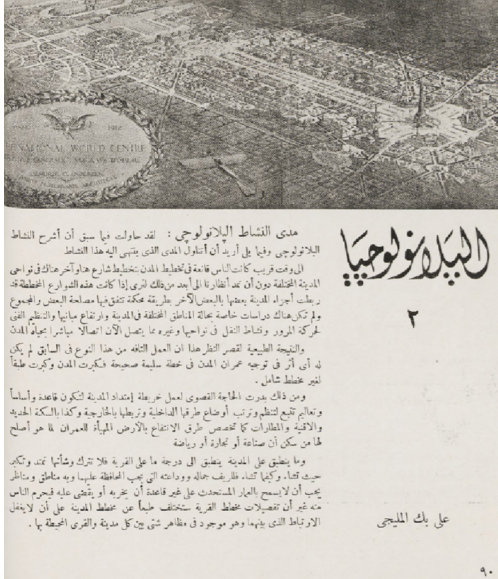 1912
WORLD CENTRE
البلانولوچيا
٢
مدى النشاط البلانولوچى : لقد حاولت فيما سبق أن أشرح النشاط
البلانولوچى وفيما يلى أريد أن أتناول المدى الذى ينتهى اليه هذا النشاط
الى وقت قريب كانت الناس قانعة فى تخطيط المدن بتخطيط شارع هنا وآخر هناك فى نواحى
المدينة المختلفة دون أن تمد أنظارنا الى أبعد من ذلك لنرى إذا كانت هذه الشوارع المخططة قد
ربطت أجزاء المدينة بعضها بالبعض الآخر بطريقة محكمة تتفق فيها مصلحة البعض والمجموع
ولم تكن هناك دراسات خاصة بحالة المناطق المختلفة فى المدينة وارتفاع مبانيها والتنظيم الفنى
لحركة المرور ونشاط النقل فى نواحيها وغيره مما يتصل الآن اتصالا مباشرا بحياة المدن
والنتيجة الطبيعية لقصر النظر هذا ان العمل التافه من هذا النوع فى السابق لم يكن
له أى أثر فى توجيه عمران المدن فى خطة سليمة صحيحة فكبرت المدن وكبرت طبقاً
لغير مخطط شامل .
ومن ذلك بدرت الحاجة القصوى لعمل خريطة إمتداد المدينة لتكون قاعدة وأساساً
وتعاليم تتبع لتنظم وترتب أوضاع طرقها الداخلية وتربطها بالخارجية وكذا بالسكة الحديد
والاقنية والمطارات كما تخصص طرق الانتفاع بالأرض المهيأة للعمران لما هو أصلح
لها من سكن أن صناعة أو تجارة أو رياضة
وما ينطبق على المدينة ينطبق الى درجة ما على القرية فلا تترك وشأنها تمتد وتكبر
حيث تشاء وكيفما تشاء. فلريف جماله ووداعته التى يجب المحافظة عليها وبه مناطق ومناظر
يجب أن لا يسمح بالعمار المستحدث على غير قاعدة أن يخربه أو يقضى عليه فيحرم الناس
منه غير أن تفصيلات مخطط القرية ستختلف طبعاً عن مخطط المدينة على أن لا يغفل
الارتباط الذى بينهما وهو موجود فى مظاهر شتى بين كل مدينة والقرى المحيطة بها .
على بك المليجى
٩٠